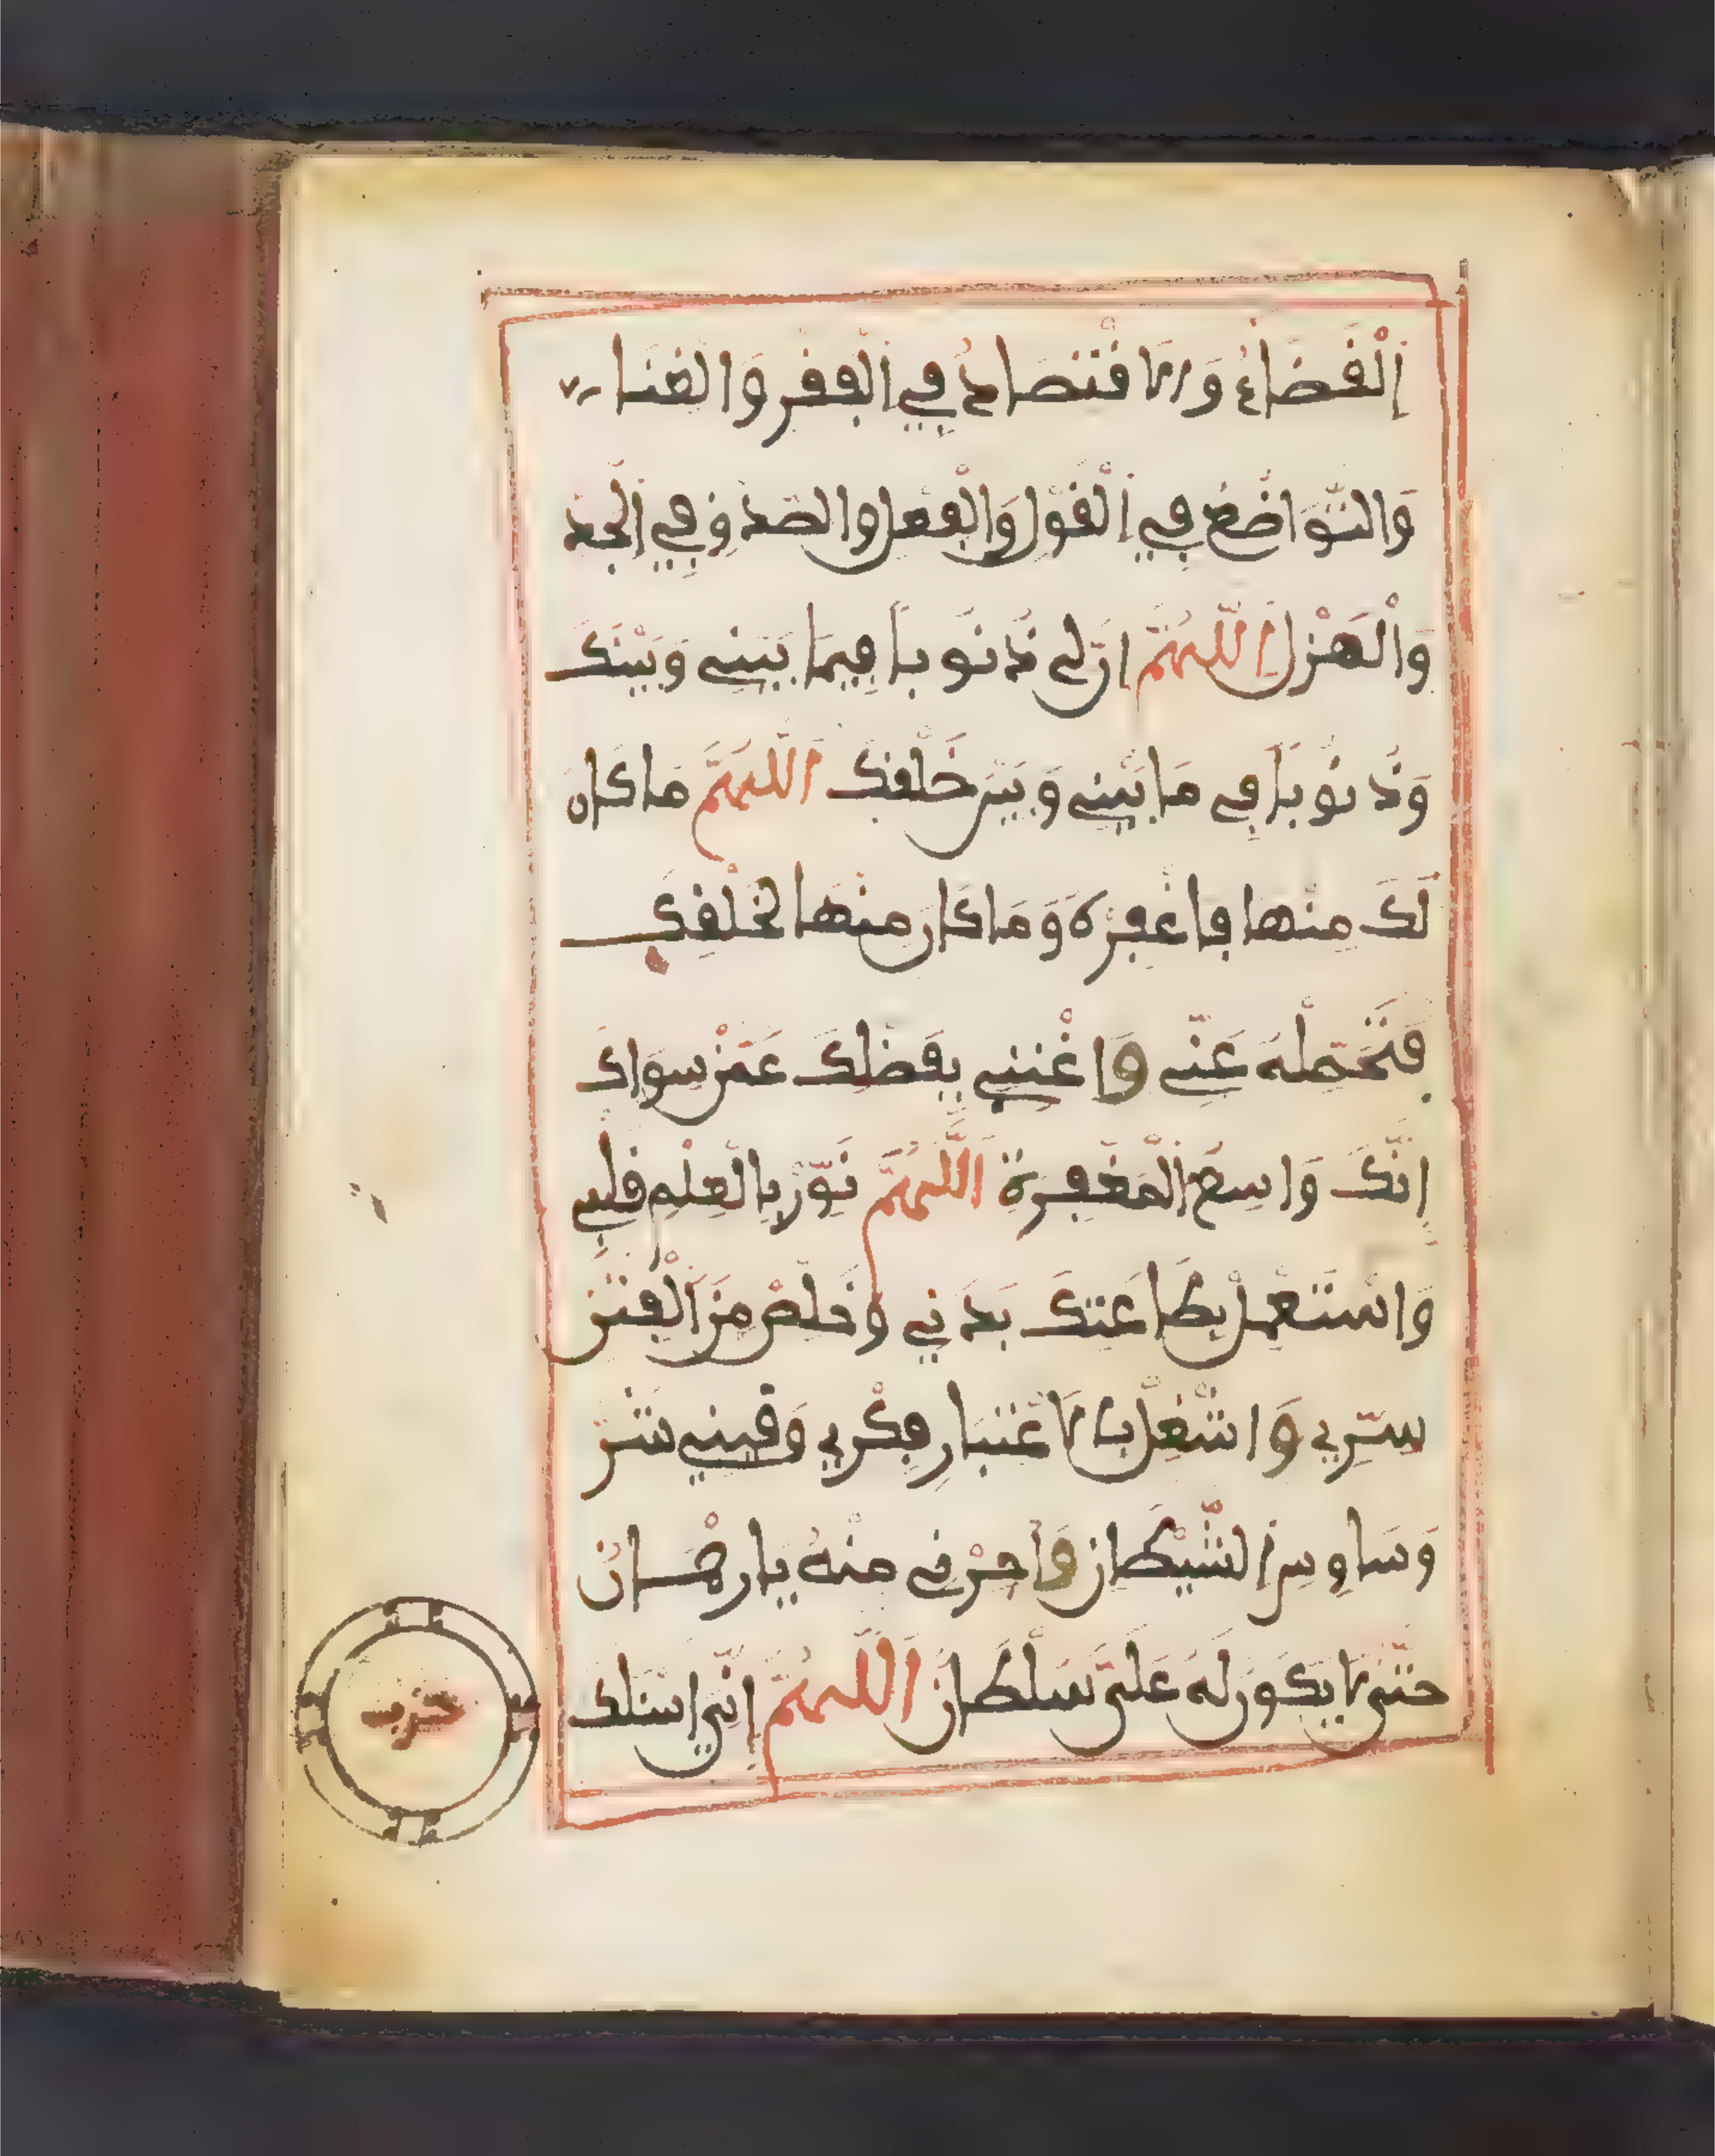 اِلْقَضَاءِ وَالاِقْتِصَادُ فِي اَلْفَقْرِ وَالْغِنَا
وَالتَّوَاضُعُ فِي اِلْقَوْلِ وَالْفِعْلِ وَالصِّدْقِ فِي اِلْجِدِّ
وَالْهَزْلِ اَللّٰهُمَّ اِنَّ لِي ذُنُوباً فِيمَا بَيْنِي وَبَيْنَكَ
وَذُنُوباً فِي مَا بَيْنِي وَبَيْنَ خَلْقِكَ اَللّٰهُمَّ مَا كَانَ
لَكَ مِنْهَا فَاغْفِرْهُ وَمَا كَانَ مِنْهَا لِخَلْقِكَ
فَتَحَمَّلْهُ عَنِّي وَاغْنِنِي بِفَضْلِكَ عَمَّنْ سِوَاكَ
اِنَّكَ وَاسِعُ الْمَغْفِرَةِ اَللّٰهُمَّ نَوِّرْ بِالْعِلْمِ قَلْبِي
وَاسْتَعْمِلْ بِطَاعَتِكَ بَدَنِي وَخَلِّصْ مِنَ اَلْفِتَنِ
سِرِّي وَاشْغِلْ بِالاِعْتِبَارِ فِكْرِي وَقِنِي شَرَّ
وَسَاوِسِ اِلشَّيْطَانِ وَاجِرْنِي مِنْهُ يَا رَحْمَانُ
حَتَّى لاَ يَكُونَ لَهُ عَلَيَّ سُلْطَانٌ اَللّٰهُمَّ اِنِّي اَسْئَلُكَ
حزب